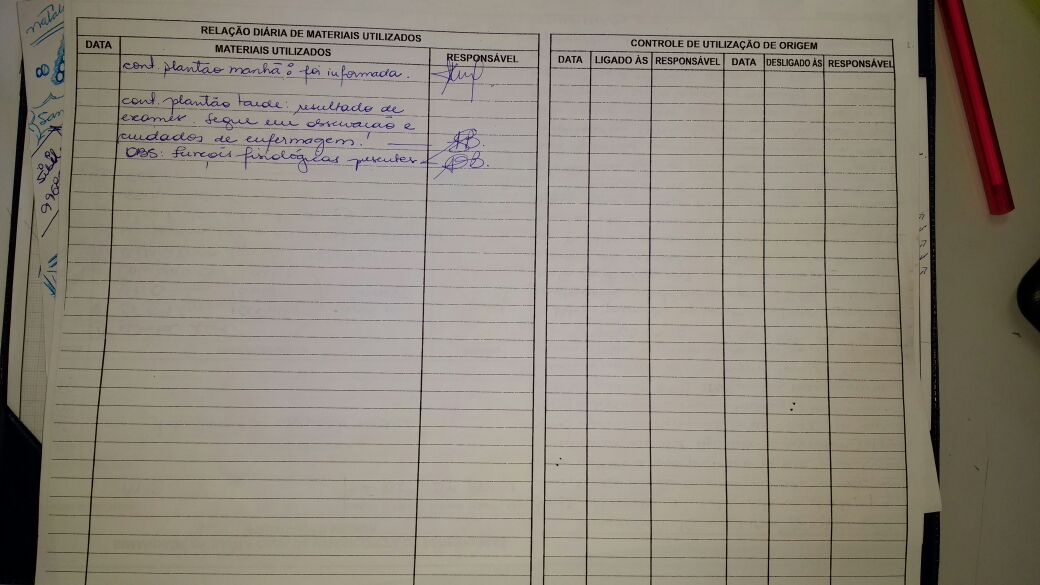 RELAÇÃO DIÁRIA DE MATERIAIS UTILIZADOS
DATA MATERIAIS UTILIZADOS RESPONSÁVEL
cont. plantão manhã: foi informada.
cont. plantão tarde: resultado de
exames. Segue em observação e
cuidados de enfermagem!
OBS: Funçois fisiológicas presentes
CONTROLE DE UTILIZAÇÃO DE ORIGEM
DATA LIGADO ÀS RESPONSÁVEL DATA DESLIGADO ÀS RESPONSÁVEL